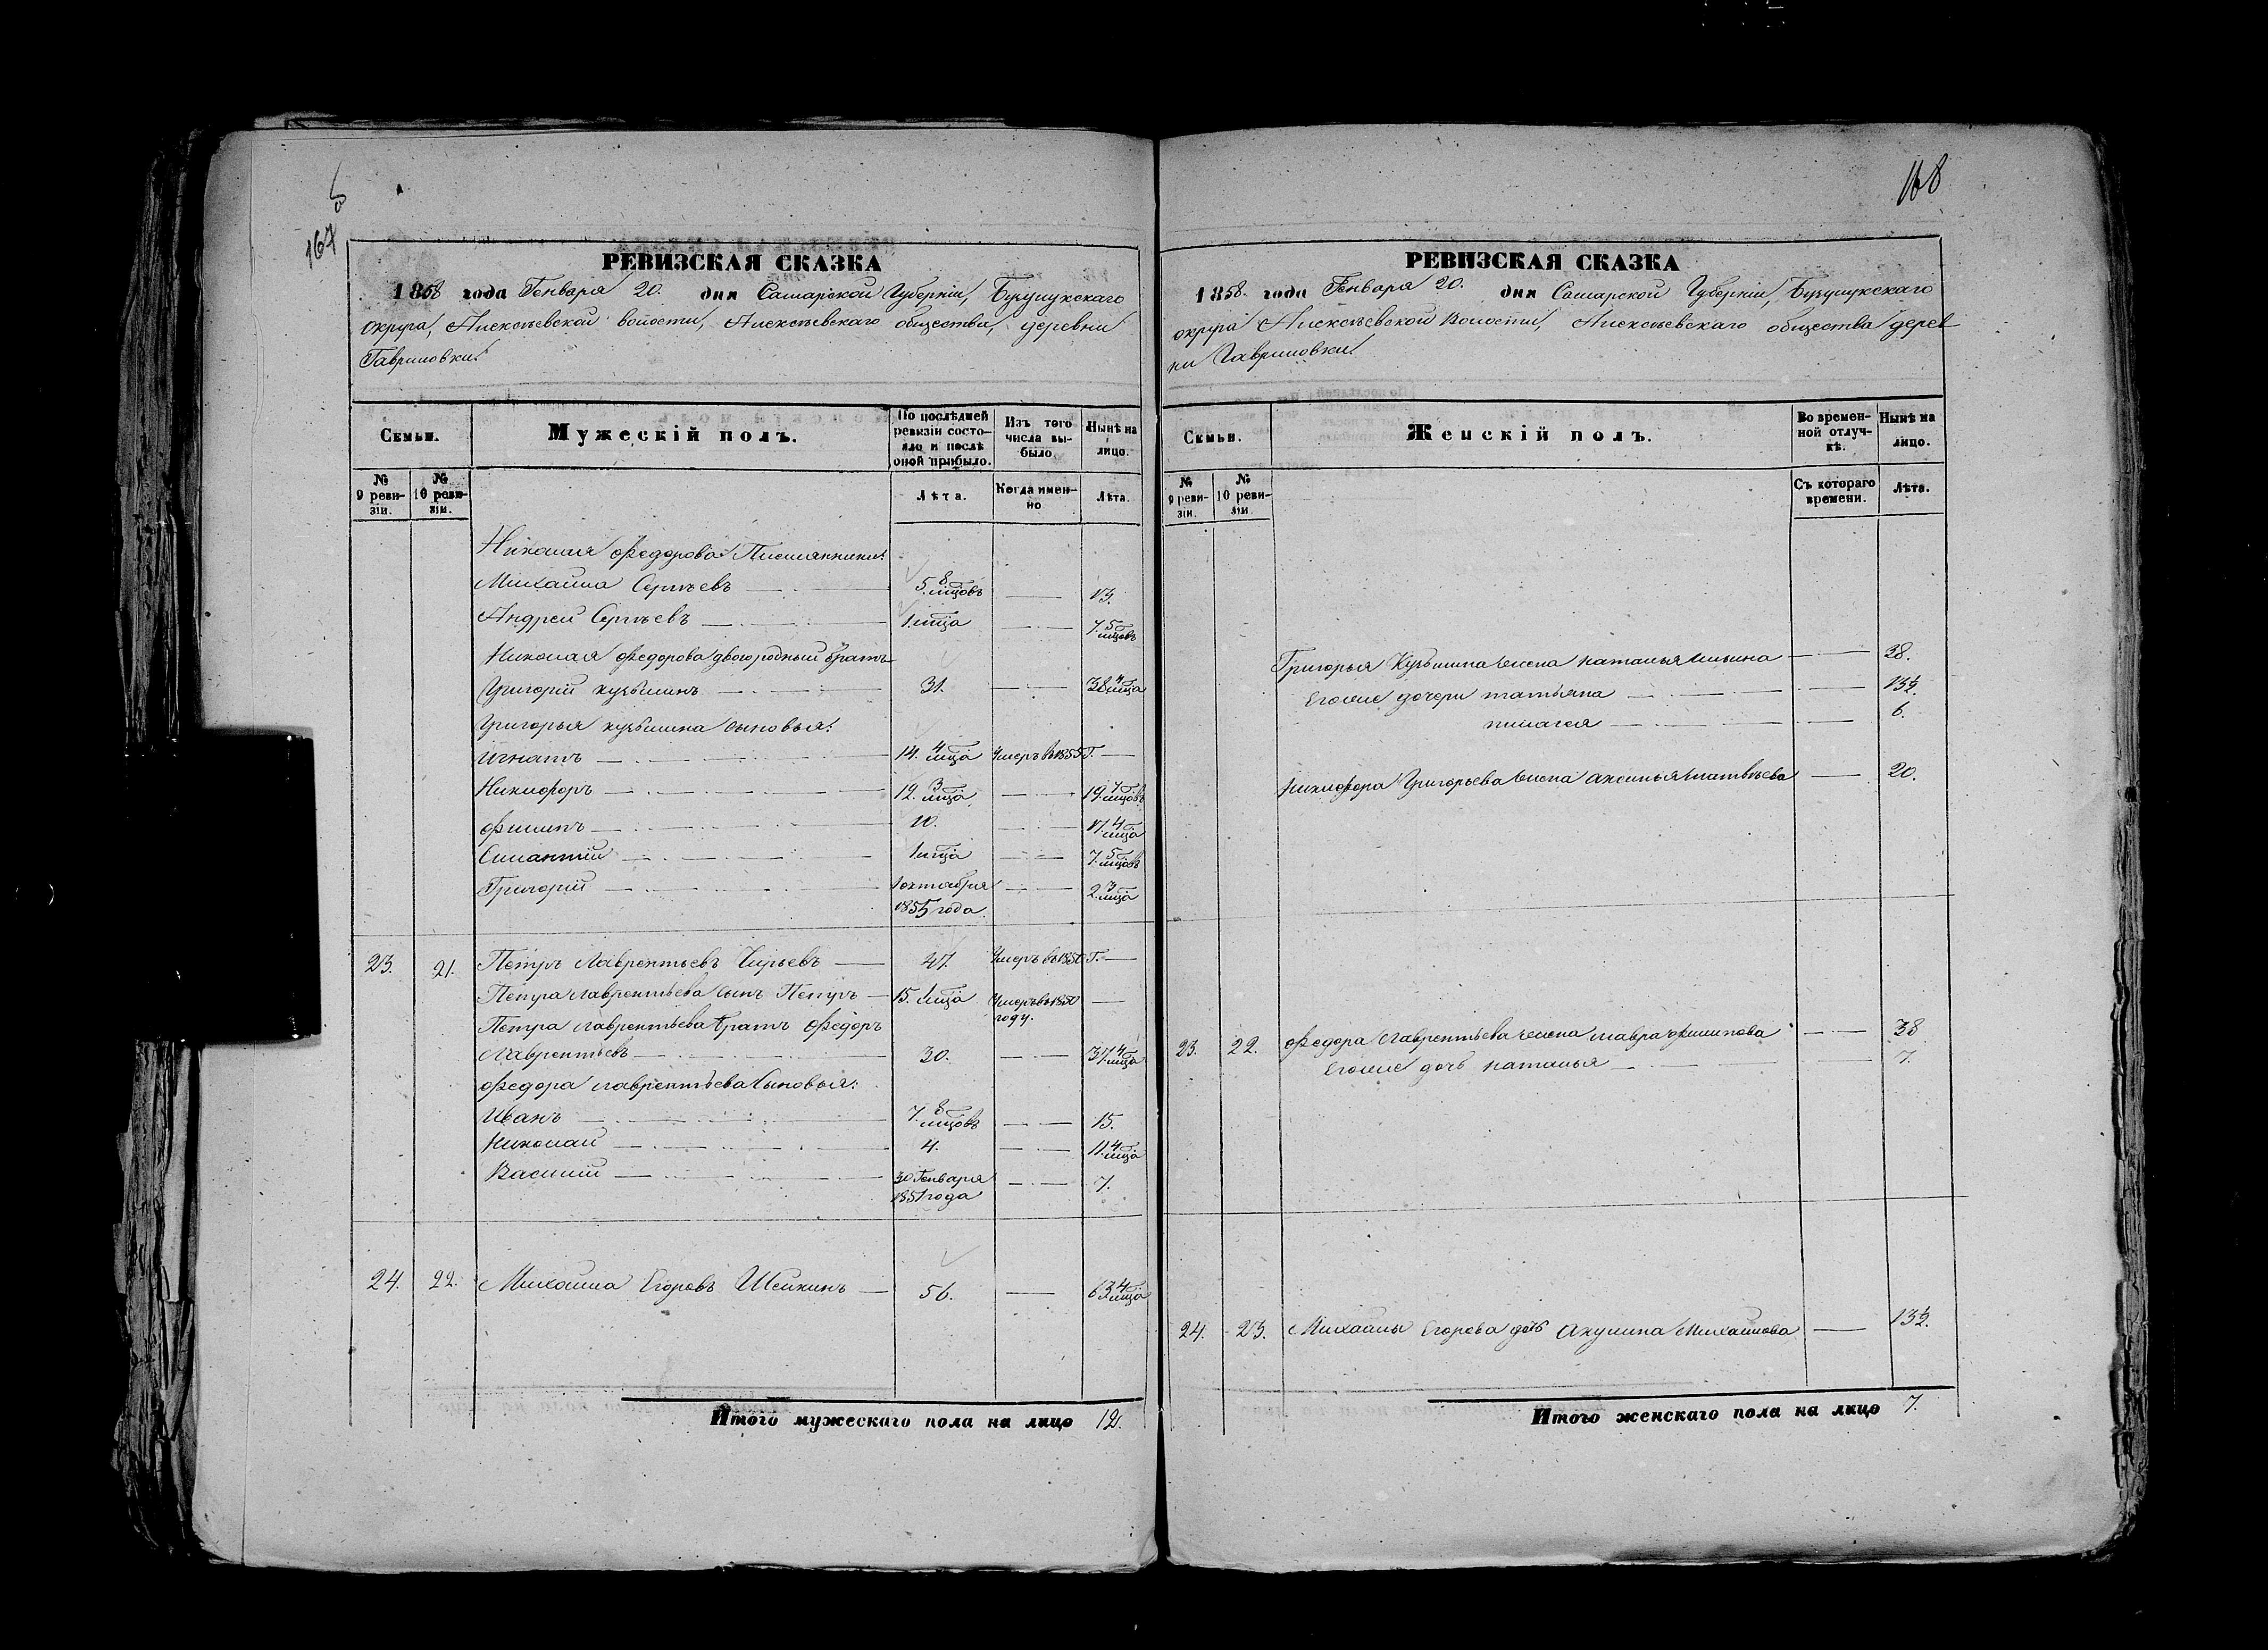 167 об
РЕВИЗСКАЯ СКАЗКА
1858 года Генваря 20. дня Самарской Губерніи, Бузулукскаго
округа, Алексѣевской волости, Алексѣевскаго общества, деревни
Гавриловки.
Семьи.
Мужескій полъ.
По послѣдней ревизіи состояло и послѣ оной прибыло.
Изъ того числа выбыло
Нынѣ на лицо.
№ 9 ревизіи.
№ 10 ревизіи.
Лѣта.
Когда именно
Лѣта.
Николая Федорова
Михайла Сергѣевъ 5. 8 мцовъ 13.
Андрей Сергѣевъ 1 мца 7. 5 мцовъ
Николая Федорова двогородный братъ
Григорій Кузьминъ 31. 38 4 мца
Григорья Кузьмина сыновья:
Игнатъ 14. 4 мца Умеръ въ 1855 Г.
Никифоръ 12. 3 мца 19. 7 мцовъ
Филипъ 10. 17. 4 мца
1 мца 7. 5 мцовъ
Григорій 1 октября 1855 года. 2. 3 мца
23. 21. Петръ Лаврентьевъ 47. Умеръ въ 1850 Г.
Петра Лаврентьева сынъ Петръ 15. 1 мца Умеръ въ 1850 году.
Петра Лаврентьева братъ Федоръ
Лаврентьевъ 30. 37. 4 мца
Федора Лаврентьева сыновья:
Иванъ 7. 8 мцовъ 15.
Николай 4. 11. 4 мца
Василій 30 Генваря 1851 года 7.
24. 22. Михайла Егоровъ Шейкинъ 56. 63. 4 мца
Итого мужескаго пола на лицо 12.
168
РЕВИЗСКАЯ СКАЗКА
1858. года Генваря 20. дня Самарской Губерніи, Бузулукскаго
округа Алексѣевской Волости, Алексѣевскаго общества дерев
ни Гавриловки.
Семьи.
Женскій полъ.
Во временной отлучкѣ.
Нынѣ на лицо.
№ 9 ревизіи.
№ 10 ревизіи
Съ котораго времени.
Лѣта.
Григорья Кузьмина жена Наталья Ильина 38.
Егоже дочери Татьяна 13½.
Пилагея 6.
Никифора Григорьева жена Аксинья Матвѣева 20.
23. 22. Федора Лаврентьева жена Мавра Филипова 38
Егоже дочь Наталья 7.
24. 23. Михайлы Егорова дочь Акулина Михайлова 13½.
Итого женскаго пола на лицо 7.